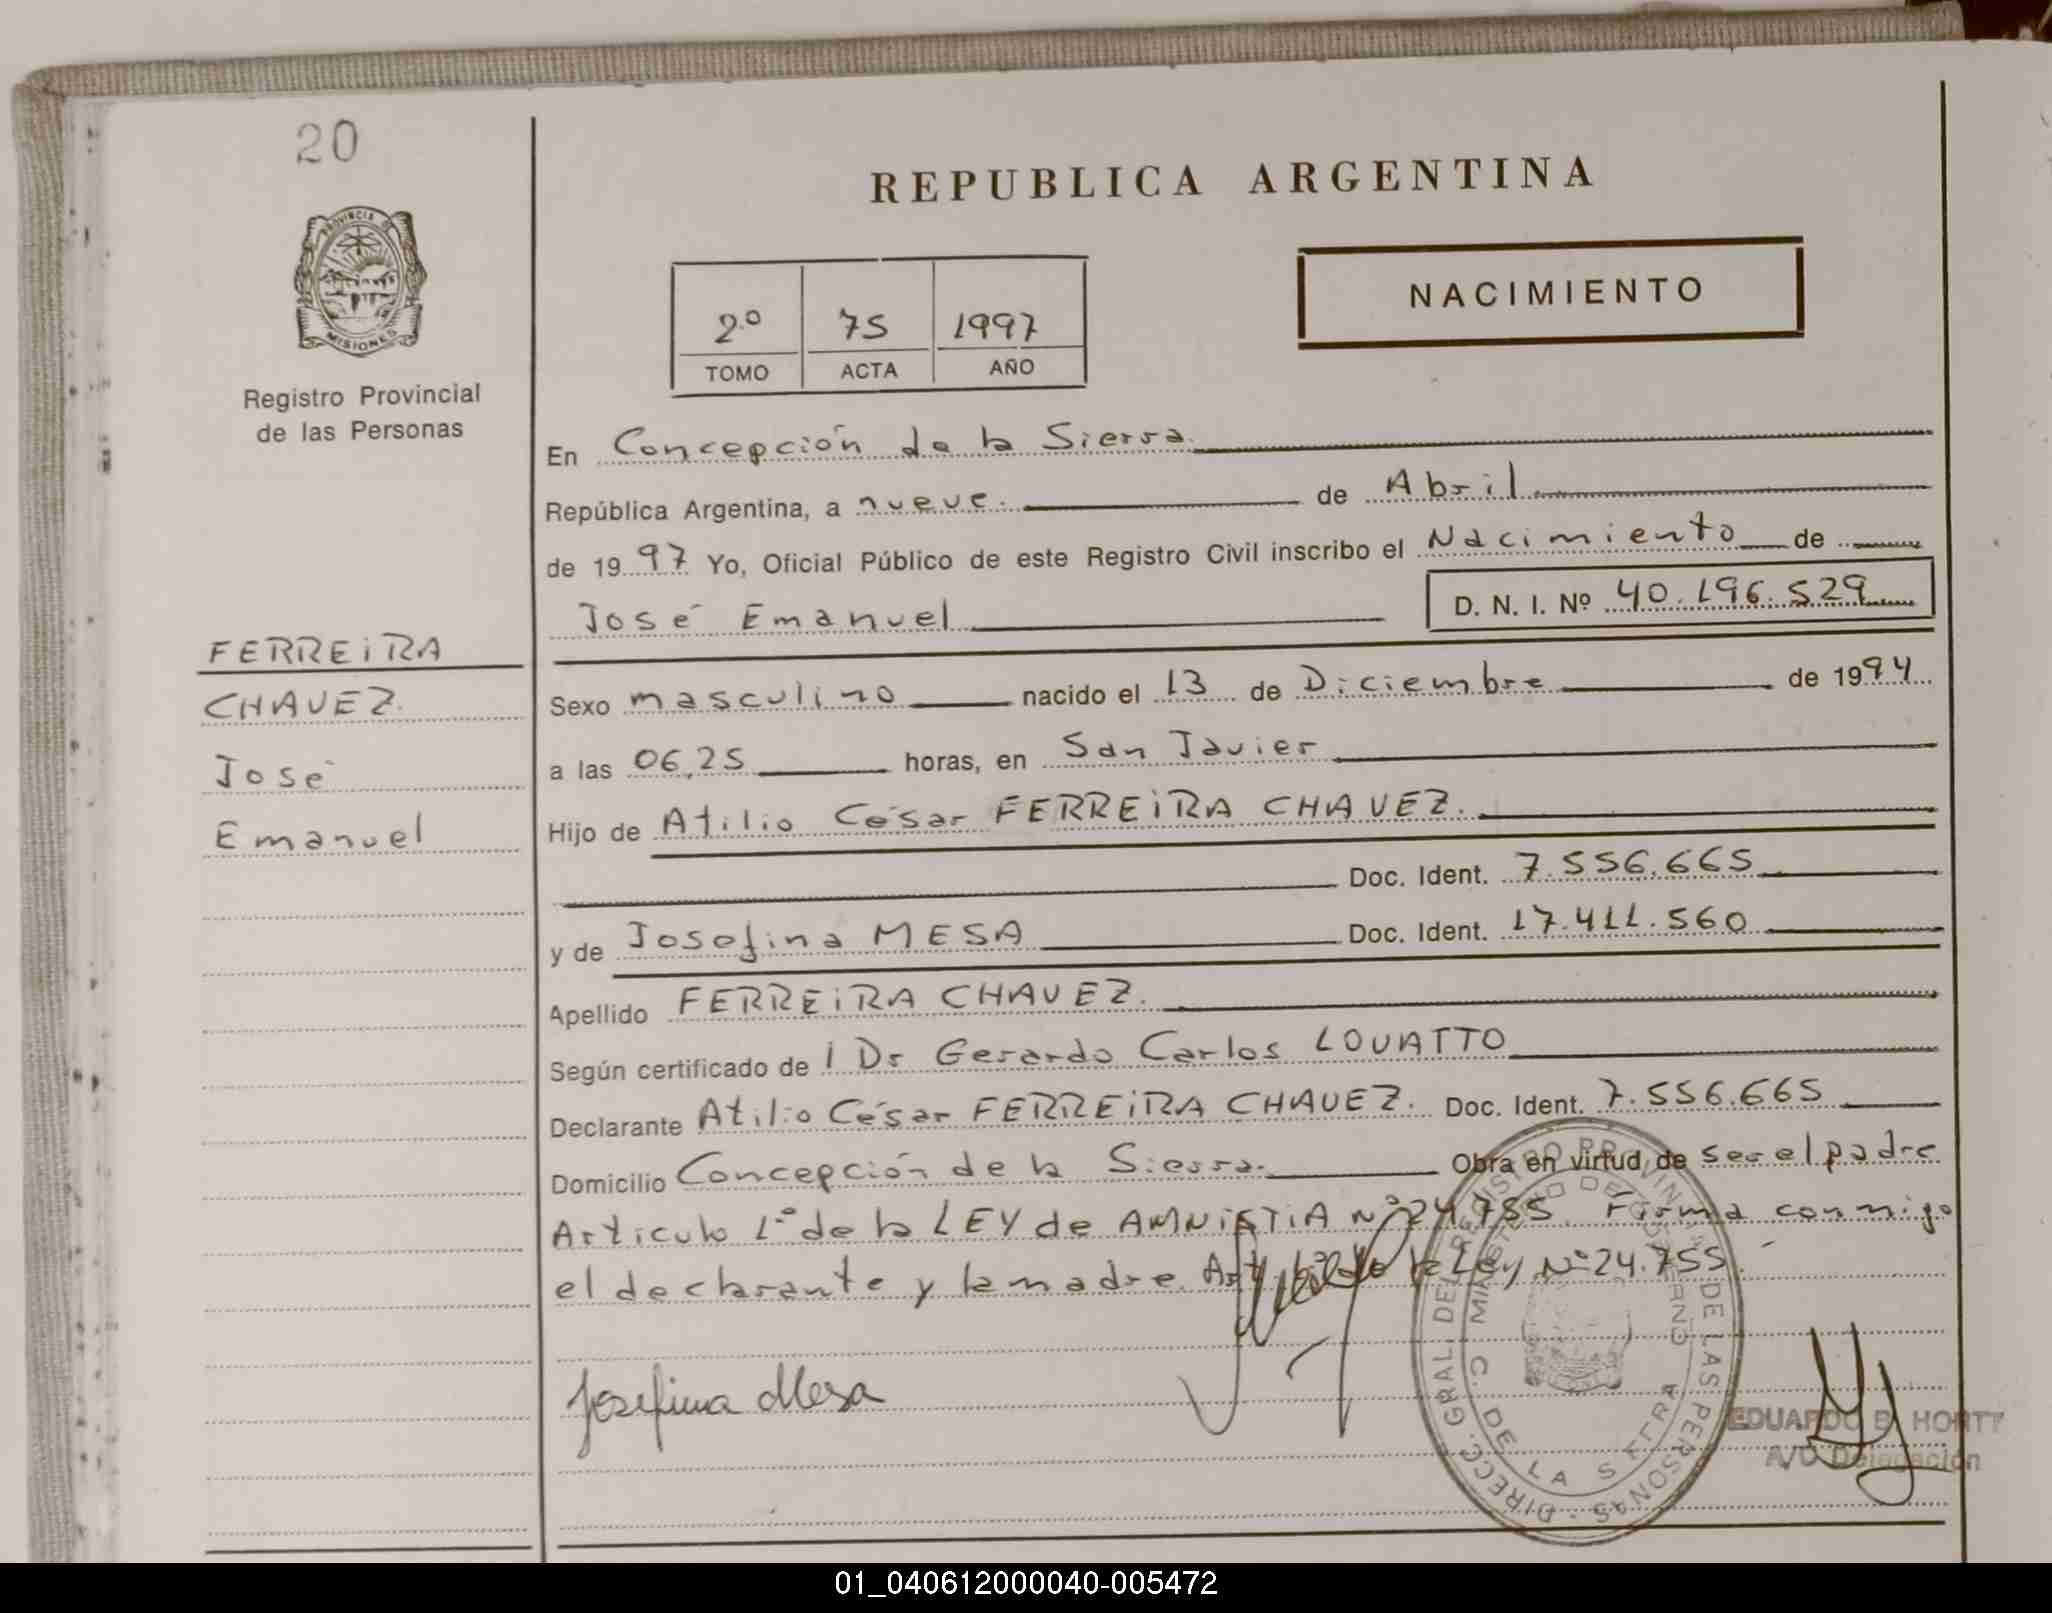 20
REPUBLICA ARGENTINA
PROVINCIA DE
MISIONES
NACIMIENTO
2º 75 1997
TOMO ACTA AÑO
Registro Provincial
de las Personas
En Concepción de la Sierra.
República Argentina, a nueve. de Abril
de 1997 Yo, Oficial Público de este Registro Civil inscribo el Nacimiento de
José Emanuel D. N. I. Nº 40.196.529
FERREIRA
CHAVEZ.
José
Emanuel
Sexo masculino nacido el 13 de Diciembre de 1994
a las 06,25 horas, en San Javier
Hijo de Atilio César FERREIRA CHAVEZ.
Doc. Ident. 7.556.665
y de Josefina MESA Doc. Ident. 17.411.560
Apellido FERREIRA CHAVEZ.
Según certificado de l Dr Gerardo Carlos LOVATTO
Declarante Atilio César FERREIRA CHAVEZ. Doc. Ident. 7.556.665
Domicilio Concepción de la Sierra. Obra en virtud de ser el padre
Articulo 1º de la LEY de AMNISTIA Nº 24.755. Firma conmigo
el declarante y la madre. Art de la Ley Nº 24.755.
Josefina Mesa
DIRECC. GRAL. DEL REGISTRO PROVINCIAL DE LAS PERSONAS
MINISTERIO DE GOBIERNO
C. DE LA SIERRA
EDUARDO B. HORTT
A/C Delegación
01_040612000040-005472